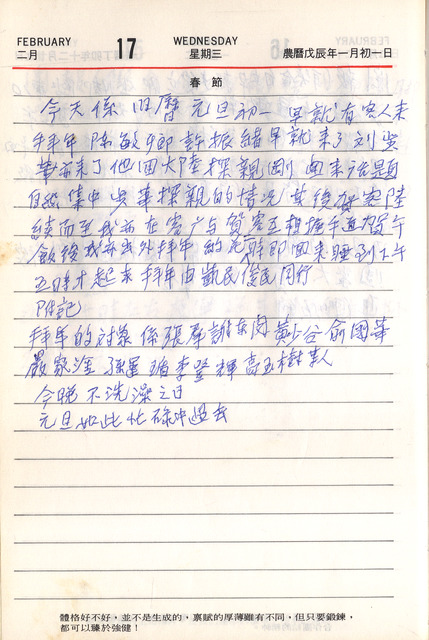 FEBRUARY 17 WEDNESDAY
二月 星期三 農曆戊辰年一月初一日
春節
今天係旧曆元旦初一早就有客人来
拜年 陈敏卿 許振緒早就来了 刘
華前来了他回大陸探親剛回来話題
自然集中 探親的情况 其後賀客陸
續而至我亦在客广与賀客互相握手道賀午
飯後我亦出外拜年 即回来睡到下午
五時才起来 拜年由凱民俊民同行
附記
拜年的对象係張群 謝东闵 黄少谷 俞國華
嚴家淦 孫運璿 李登輝 高玉樹等人
今晚不洗澡之日
元旦如此忙碌中過去
體格好不好，並不是生成的，稟賦的厚薄雖有不同，但只要鍛鍊，
都可以臻於強健！